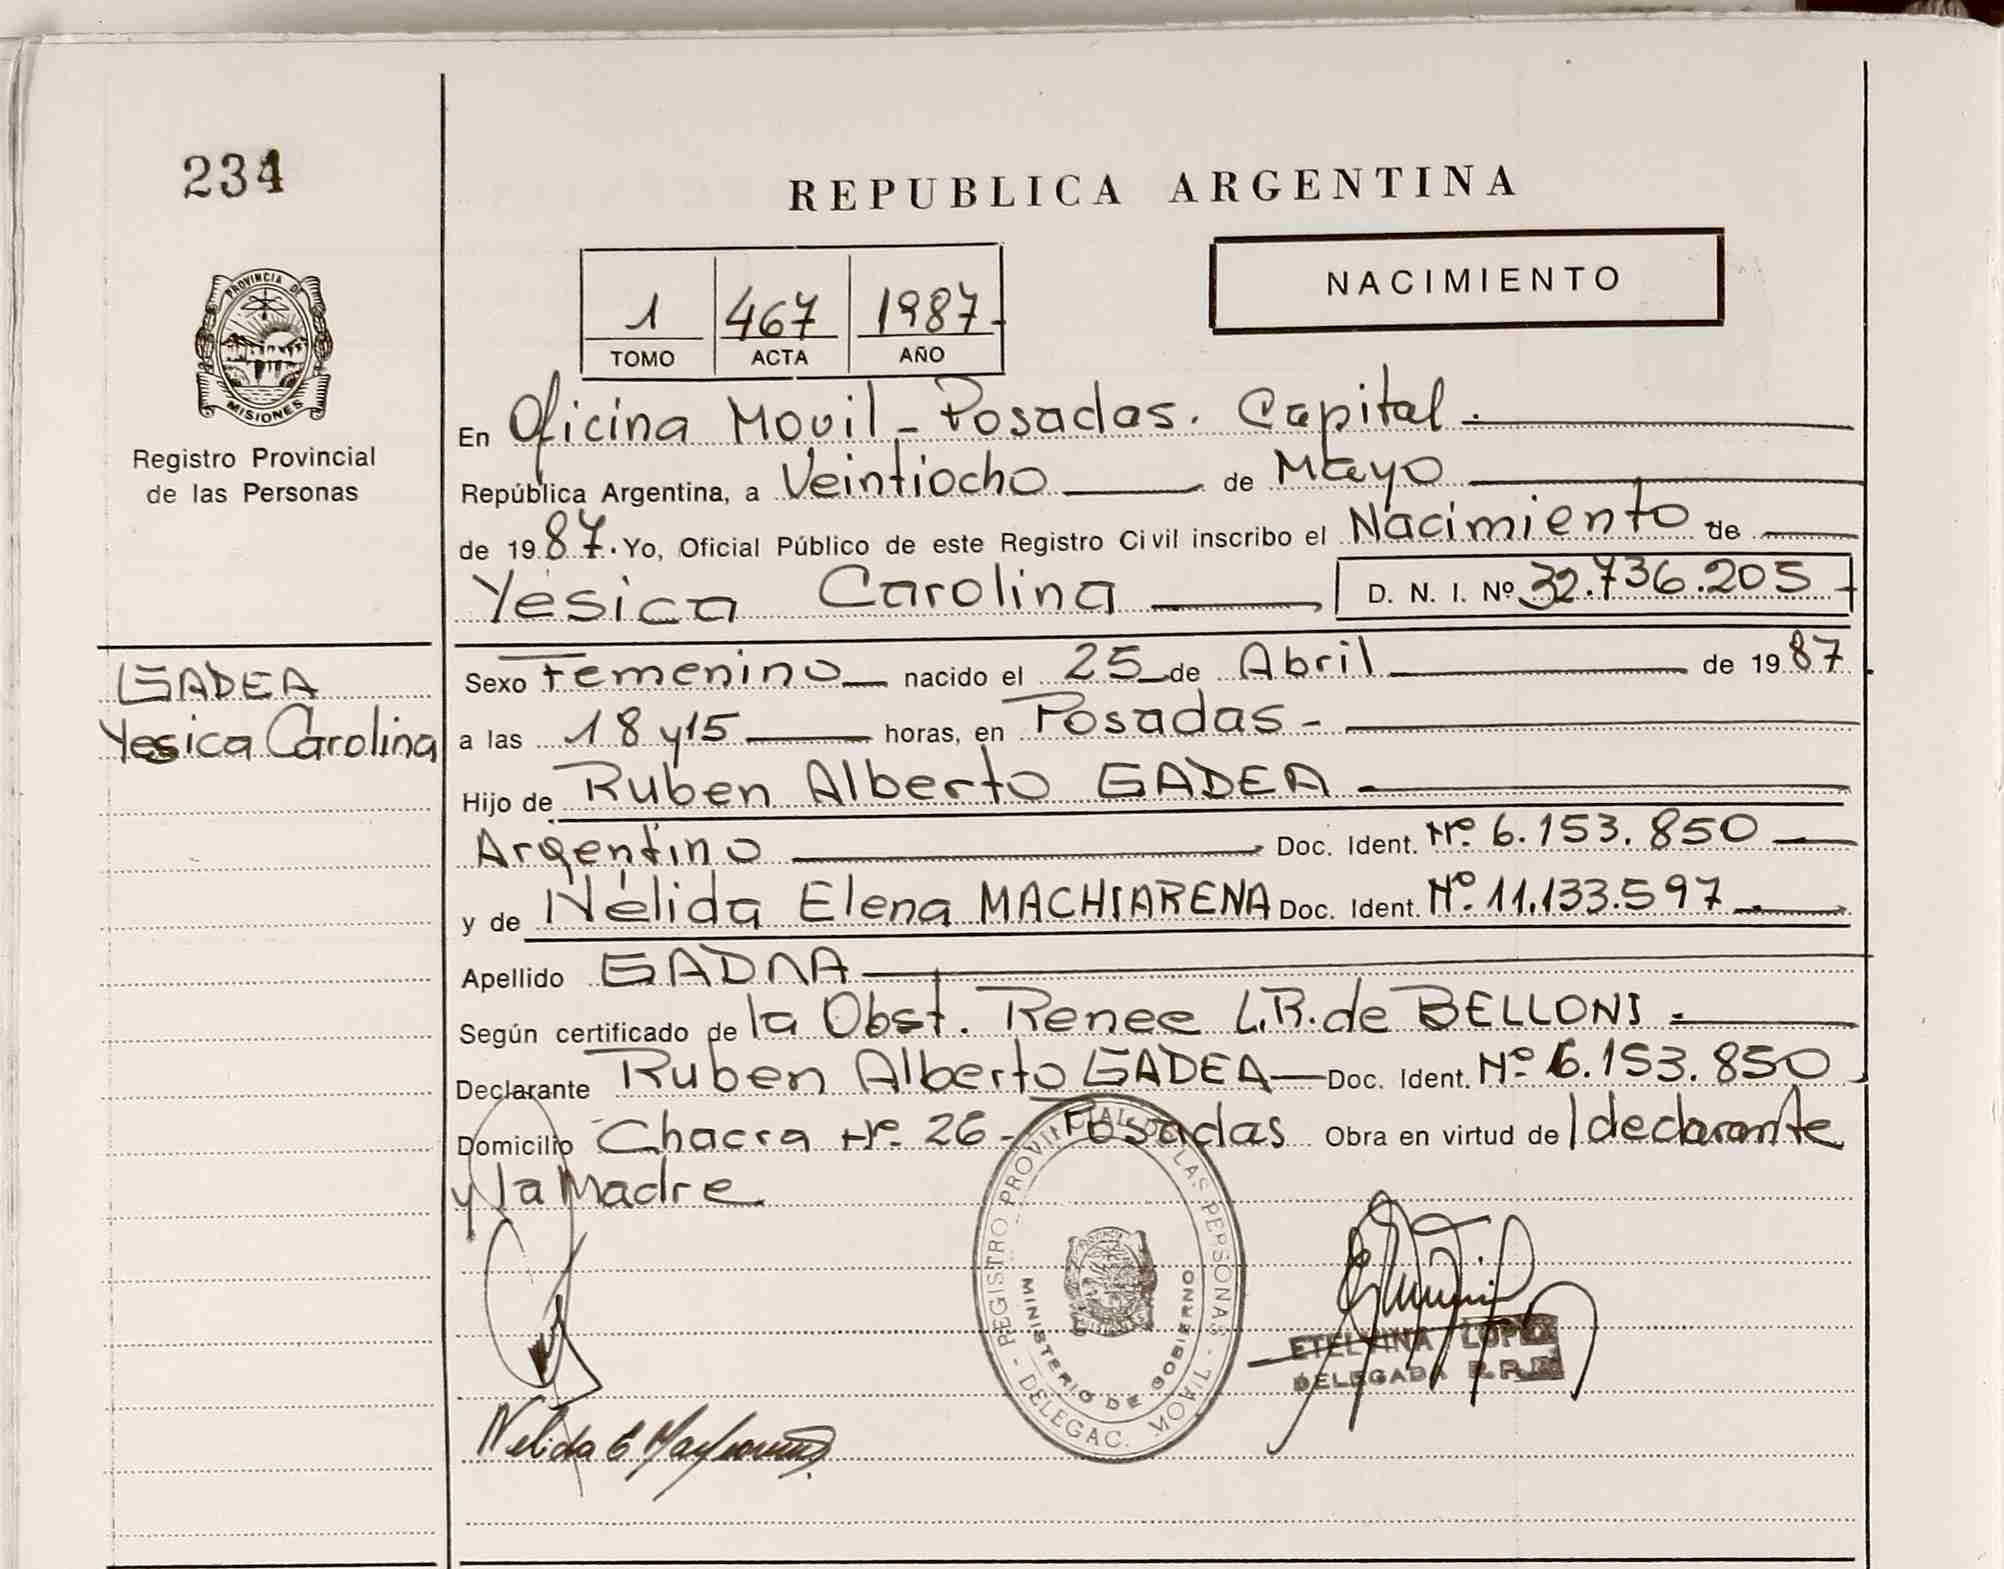 234
REPUBLICA ARGENTINA
NACIMIENTO
PROVINCIA DE
MISIONES
Registro Provincial
de las Personas
1 467 1987
TOMO ACTA AÑO
En Oficina Movil - Posadas. Capital.
República Argentina, a Veintiocho de Mayo
de 1987. Yo, Oficial Público de este Registro Civil inscribo el Nacimiento de
Yésica Carolina D. N. I. Nº 32.736.205
GADEA
Yesica Carolina
Sexo Femenino nacido el 25 de Abril de 1987
a las 18 y 15 horas, en Posadas -
Hijo de Ruben Alberto GADEA
Argentino Doc. Ident. Nº 6.153.850
y de Nélida Elena MACHIARENA Doc. Ident. Nº 11.133.597
Apellido GADEA
Según certificado de la Obst. Renee L.R. de BELLONI.
Declarante Ruben Alberto GADEA Doc. Ident. Nº 6.153.850
Domicilio Chacra Nº 26 - Posadas Obra en virtud de l declarante
y la Madre
REGISTRO PROVINCIAL DE LAS PERSONAS - DELEGAC. MOVIL -
MINISTERIO DE GOBIERNO
ETELVINA LOPEZ
DELEGADA R.P.
Nelida E